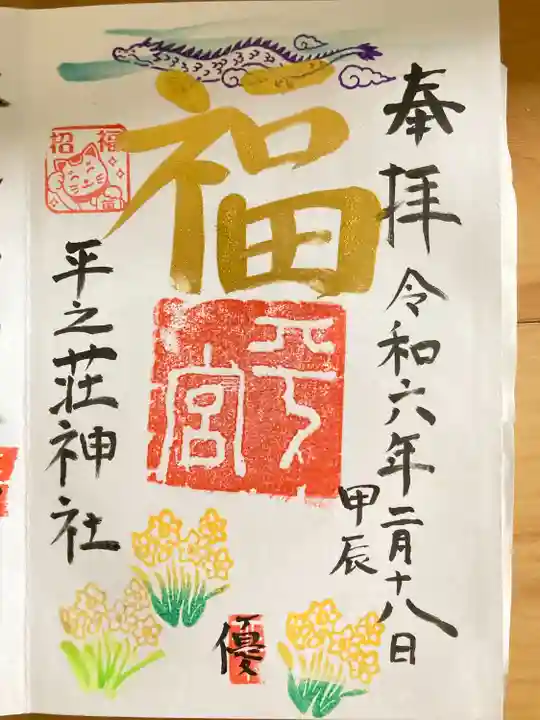 奉拝
令和六年二月十八日
甲辰
福
招福
宮
平之荘神社
優